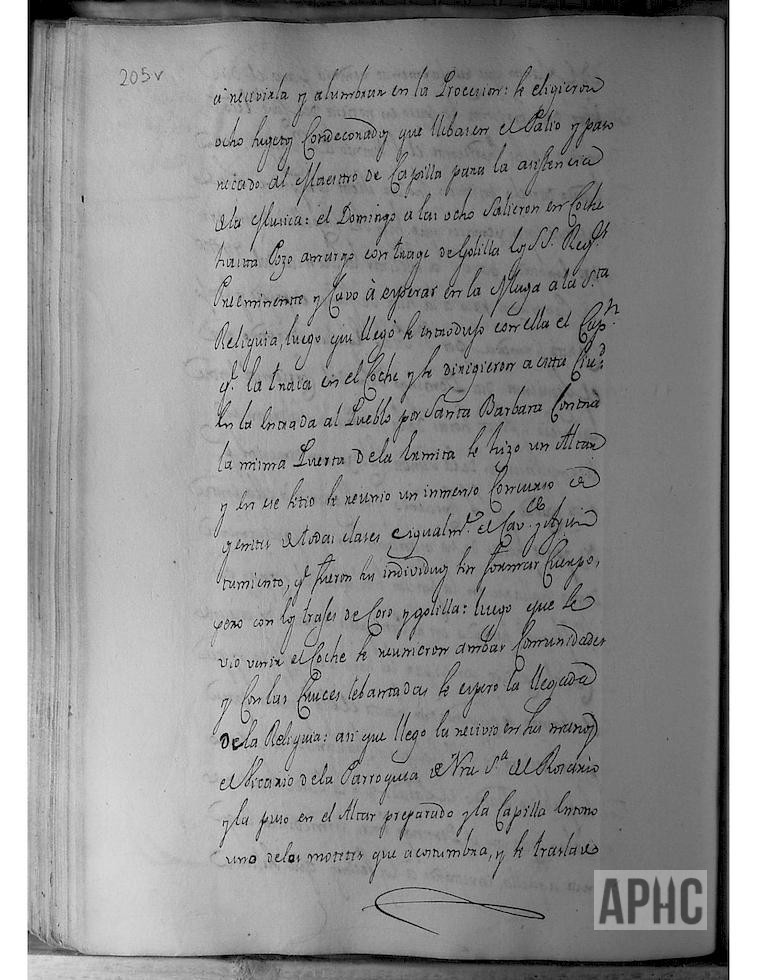 205v
á recivirla y alumbrar en la Procesion: se eligieron
ocho sugetos Condecorados que llebasen el Palio y paso
recado al Maestro de Capilla para la asistencia
de la Musica: el Domingo á las ocho Salieron en Coche
hasta Pozo amargo con trage de Golilla los S.S. Reg.s
Preeminente y Cavo à esperar en la Muga a la S.ta
Reliquia, luego que llegò se introdujo con ella el Cap.n
q.e la traia en el Coche y se dirigieron a esta Ciu.d
En la Entrada al Pueblo por Santa Barbara Contra
la misma Puerta de la Ermita se hizo un Altar
y en ese sitio se reunio un inmenso Concurso de
gentes de todas clases e igualm.te el Cav.do y Ayun
tamiento, q.e fueron sus individuos sin formar Cuerpo,
pero con los trajes de Coro, y golilla: luego que se
vio venir el Coche se reunieron ambas Comunidades
y Con las Cruces lebantadas se espero la llegada
de la Reliquia: asi que llego la recivio en sus manos
el Vicario de la Parroquia de Nra S.ra del Rosario
y la puso en el Altar preparado y la Capilla Entono
uno de los motetes que acostumbra, y se traslado
APHC